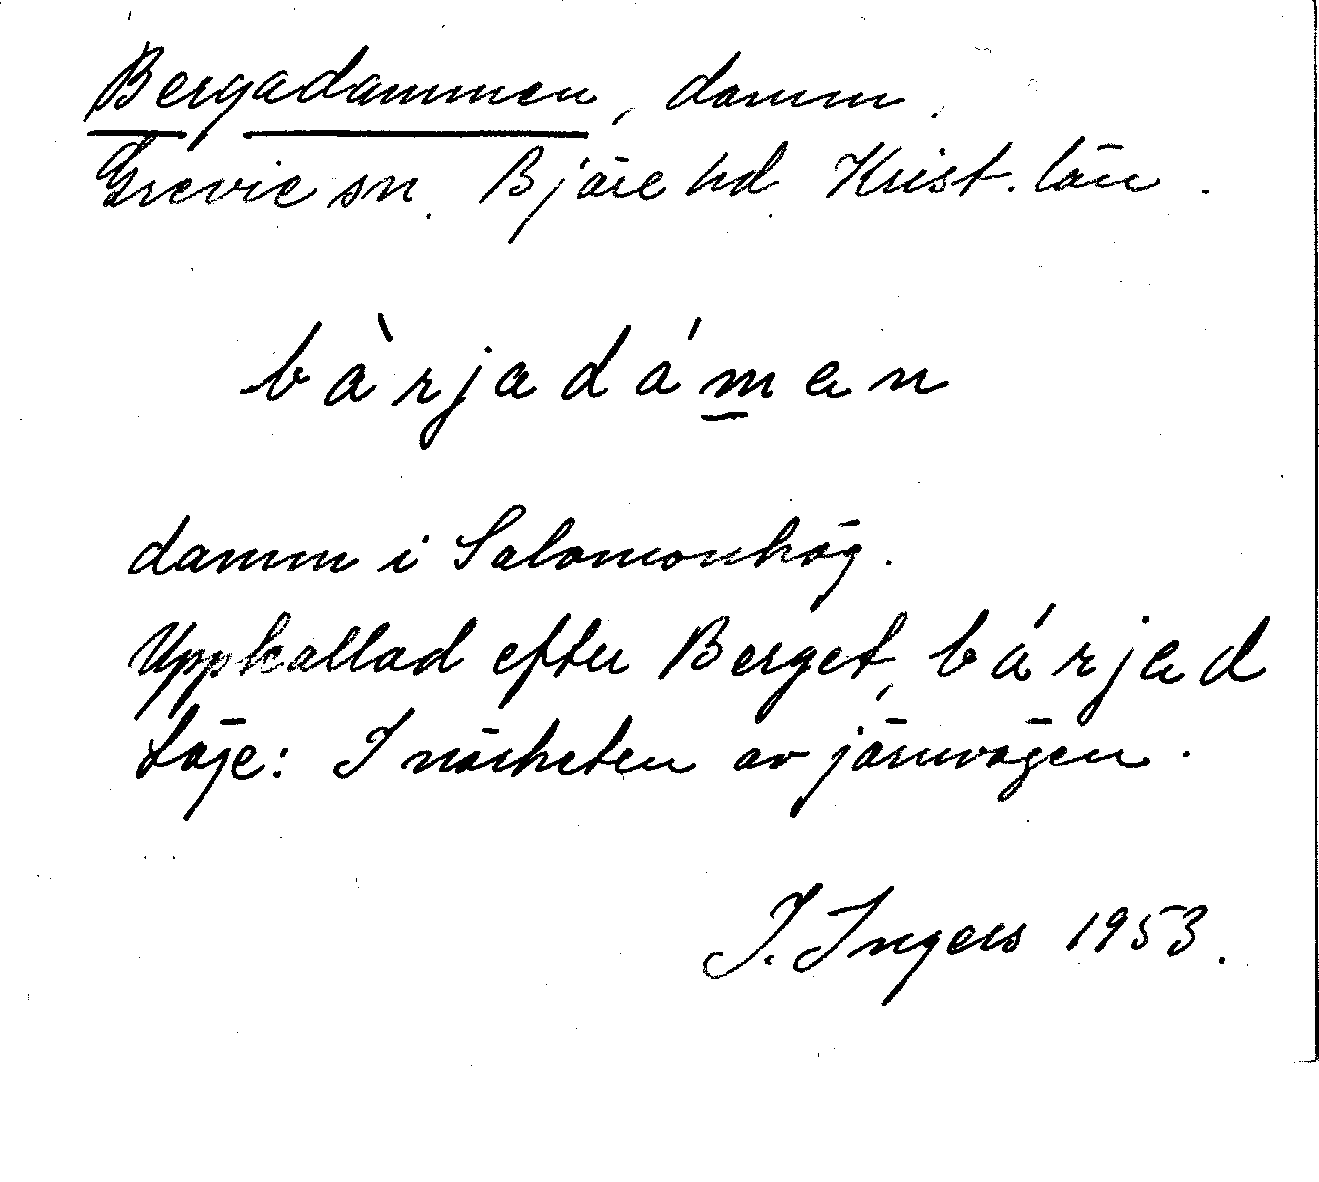 Bergadammen, damm.
Grevie sn. Bjäre hd. Krist. län.
bàrjadám̲en
damm i Salomonhög.
Uppkallad efter Berget, bárjad
Läge: I närheten av järnvägen.
I. Ingers 1953.